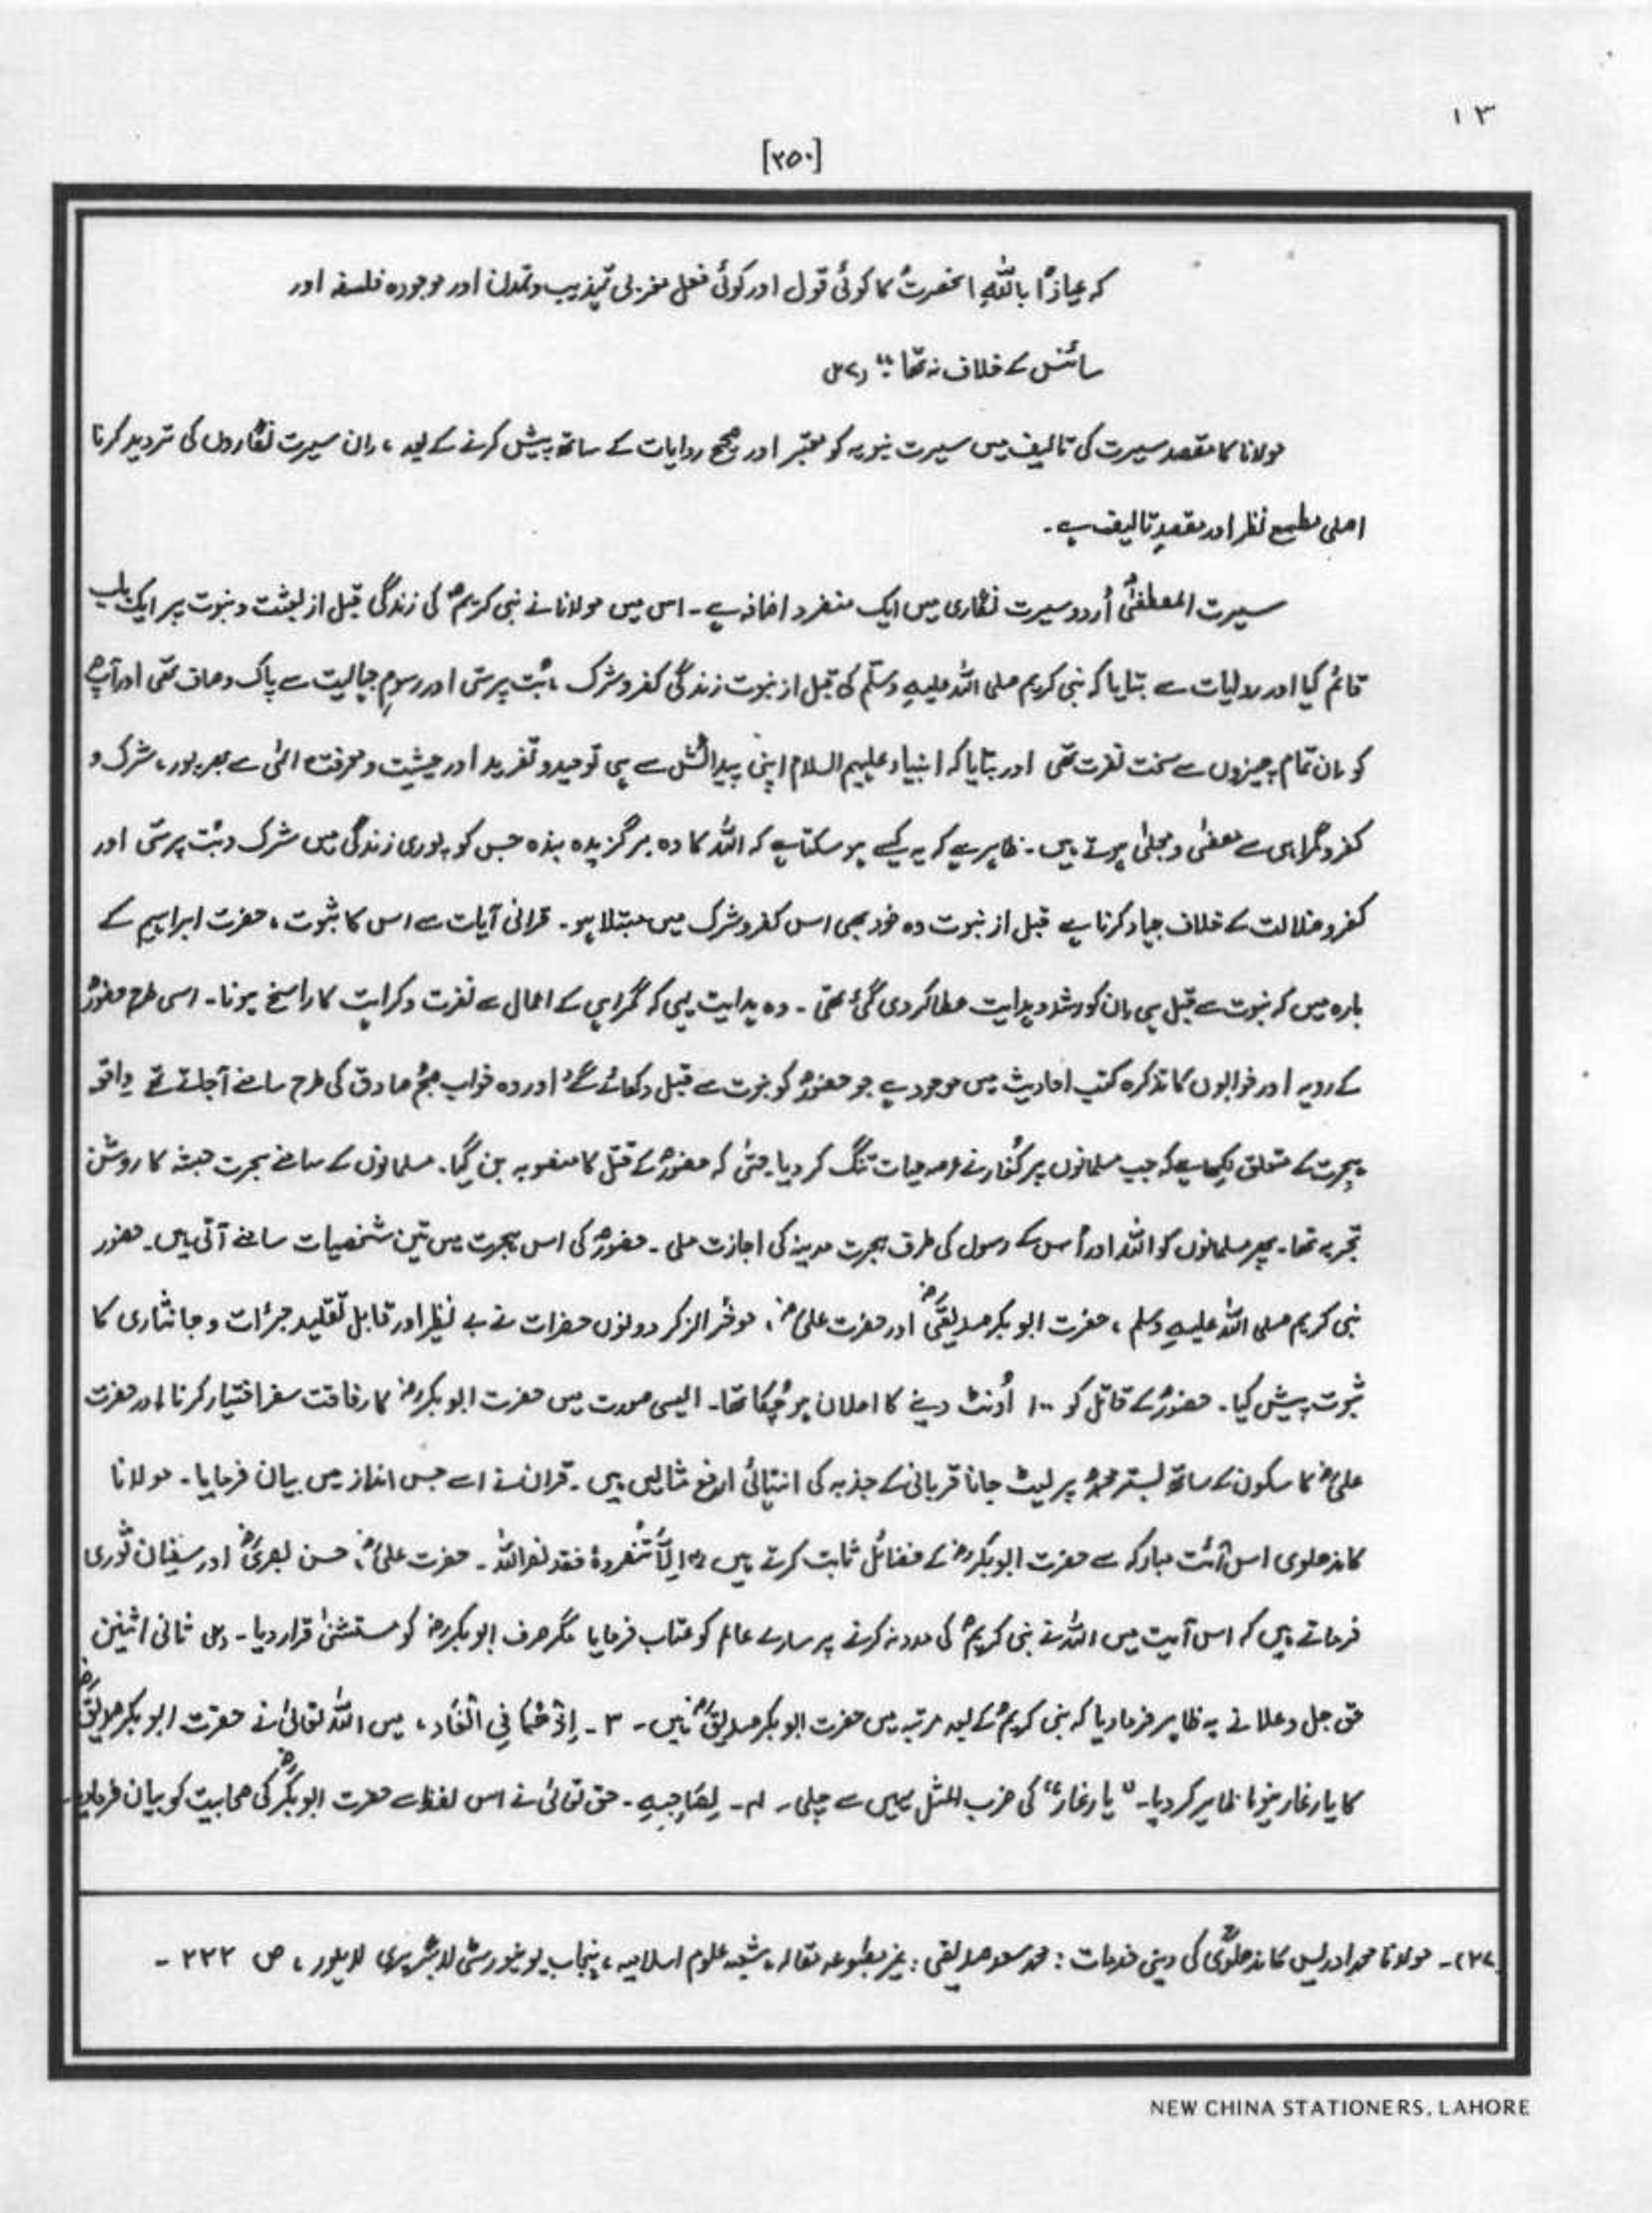 ۱۳
[۲۵۰]
کہ عیاذًا باللہِ انحضرتؐ کا کوئی قول اور کوئی فعل مغربی تہذیب و تمدن اور موجودہ فلسفہ اور
سائنس کے خلاف نہ تھا ؛"
مولانا کا مقصد سیرت کی تالیف میں سیرت نبویہ کو معتبر اور صحیح روایات کے ساتھ پیش کرنے کے بعد ، ان سیرت نگاروں کی تردید کرنا
اصلی مطمع نظر اور مقصدِ تالیف ہے ۔
سیرت المصطفٰیؐ اُردو سیرت نگاری میں ایک منفرد اضافہ ہے ۔ اس میں مولانا نے نبی کریمؐ کی زندگی قبل از بعثت و نبوت پر ایک باب
قائم کیا اور روایات سے بتایا کہ نبی کریم صلی اللہ علیہِ وسلّم کی قبل از نبوت زندگی کفر و شرک ، بُت پرستی اور رسومِ جہالیت سے پاک و صاف تھی اور آپؐ
کو اِن تمام چیزوں سے سخت نفرت تھی اور بتایا کہ انبیاء علیہم السلام اپنی پیدائش سے ہی توحید و تفرید اور خشیت و معرفت الٰہی سے بھرپور ، شرک و
کفر و گمراہی سے مصفٰی و مجلٰی ہوتے ہیں ۔ ظاہر ہے کہ یہ کیسے ہو سکتا ہے کہ اللہ کا وہ برگزیدہ بندہ جس کو پوری زندگی میں شرک و بُت پرستی اور
کفر و ضلالت کے خلاف جہاد کرنا ہے قبل از نبوت وہ خود بھی اس کفر و شرک میں مبتلا ہو ۔ قرانی آیات سے اس کا ثبوت ، حضرت ابراہیم کے
بارہ میں کہ نبوت سے قبل ہی اِن کو رشد و ہدایت عطا کر دی گئی تھی ۔ وہ ہدایت یہی کہ گمراہی کے اعمال سے نفرت و کراہت کا راسخ ہونا ۔ اسی طرح حضورؐ
کے رویہ اور خوابوں کا تذکرہ کتب احادیث میں موجود ہے جو حضورؐ کو نبوت سے قبل دکھائے گئے اور وہ خواب صبح صادق کی طرح سامنے آجاتے تھے واقعہ
ہجرت کے متعلق لکھا ہے کہ جب مسلمانوں پر کُفار نے عرصہ حیات تنگ کر دیا حتٰی کہ حضورؐ کے قتل کا منصوبہ بن گیا ۔ مسلمانوں کے سامنے ہجرت حبشہ کا روشن
تجربہ تھا ۔ پھر مسلمانوں کو اللہ اور اُس کے رسول کی طرف ہجرت مدینہ کی اجازت ملی ۔ حضورؐ کی اس ہجرت میں تین شخصیات سامنے آتی ہیں ۔ حضور
نبی کریم صلی اللہ علیہِ وسلم ، حضرت ابو بکر صدیقؓ اور حضرت علیؓ ، موخر الزکر دونوں حضرات نے بے نظیر اور قابل تقلید جرأت و جانثاری کا
ثبوت پیش کیا ۔ حضورؐ کے قاتل کو ۱۰۰ اُونٹ دینے کا اعلان ہو چُکا تھا ۔ ایسی صورت میں حضرت ابو بکرؓ کا رفاقت سفر اختیار کرنا اور حضرت
علیؓ کا سکون کے ساتھ بستر محمدؐ پر لیٹ جانا قربانی کے جذبہ کی انتہائی ارفع مثالیں ہیں ۔ قران نے اسے جس انداز میں بیان فرمایا ۔ مولانا
کاندھلوی اس آئت مبارکہ سے حضرت ابو بکرؓ کے فضائل ثابت کرتے ہیں (۱) اِلَّا تَنْصُروہُ فقد نصر اللہ ۔ حضرت علیؓ ، حسن بصریؒ اور سفیان ثوری
فرماتے ہیں کہ اس آیت میں اللہ نے نبی کریمؐ کی مدد نہ کرنے پر سارے عالم کو عتاب فرمایا مگر صرف ابو بکرؓ کو مستثنٰی قرار دیا ۔ (۲) ثانی اثنین
حق جل و علا نے یہ ظاہر فرما دیا کہ نبی کریمؐ کے بعد مرتبہ میں حضرت ابو بکر صدیقؓ ہیں ۔ ۳ ۔ اِذْ ھُمَا فِی الْغَار ، میں اللہ تعالیٰ نے حضرت ابو بکر صدیقؓ
کا یار غار ہونا ظاہر کر دیا ۔ "یارِ غار" کی ضرب المثل یہیں سے چلی ۔ ۴ ۔ لِصَاحِبِہِ ۔ حق تعالیٰ نے اس لفظ سے حضرت ابو بکرؓ کی صحابیت کو بیان فرمایا ۔
(۲۷) ۔ مولانا محمد ادریس کاندھلویؒ کی دینی خدمات : محمد سعد صدیقی : غیر مطبوعہ مقالہ ، شعبہ علوم اسلامیہ ، پنجاب یونیورسٹی لائبریری لاہور ، ص ۲۲۲ ۔
NEW CHINA STATIONERS, LAHORE